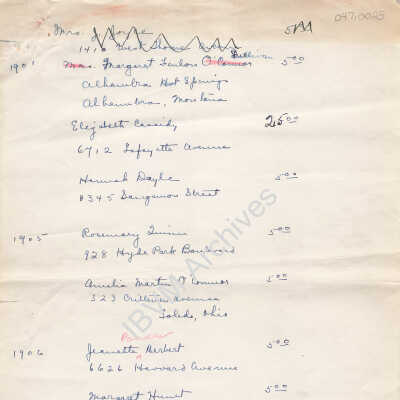 047,0025
Mrs. J. 5
1410
1901 Mrs. Margaret Fanlon O'Connor Sullivan 5.00
Alhambra Hot Springs
Alhambra, Montana
Elizabeth Cassidy 25.00
6712 Lafayette Avenue
Hannah Doyle 5.00
8345 Sangamon Street
1905 Rosemary Quinn 5.00
928 Hyde Park Boulevard
Amelia Martin O'Connor 5.00
323 Avenue
Toledo, Ohio
1906 Jeanette Herbert 5.00
6626 Harvard Avenue
Margaret Hunt 5.00
IBVM Archives